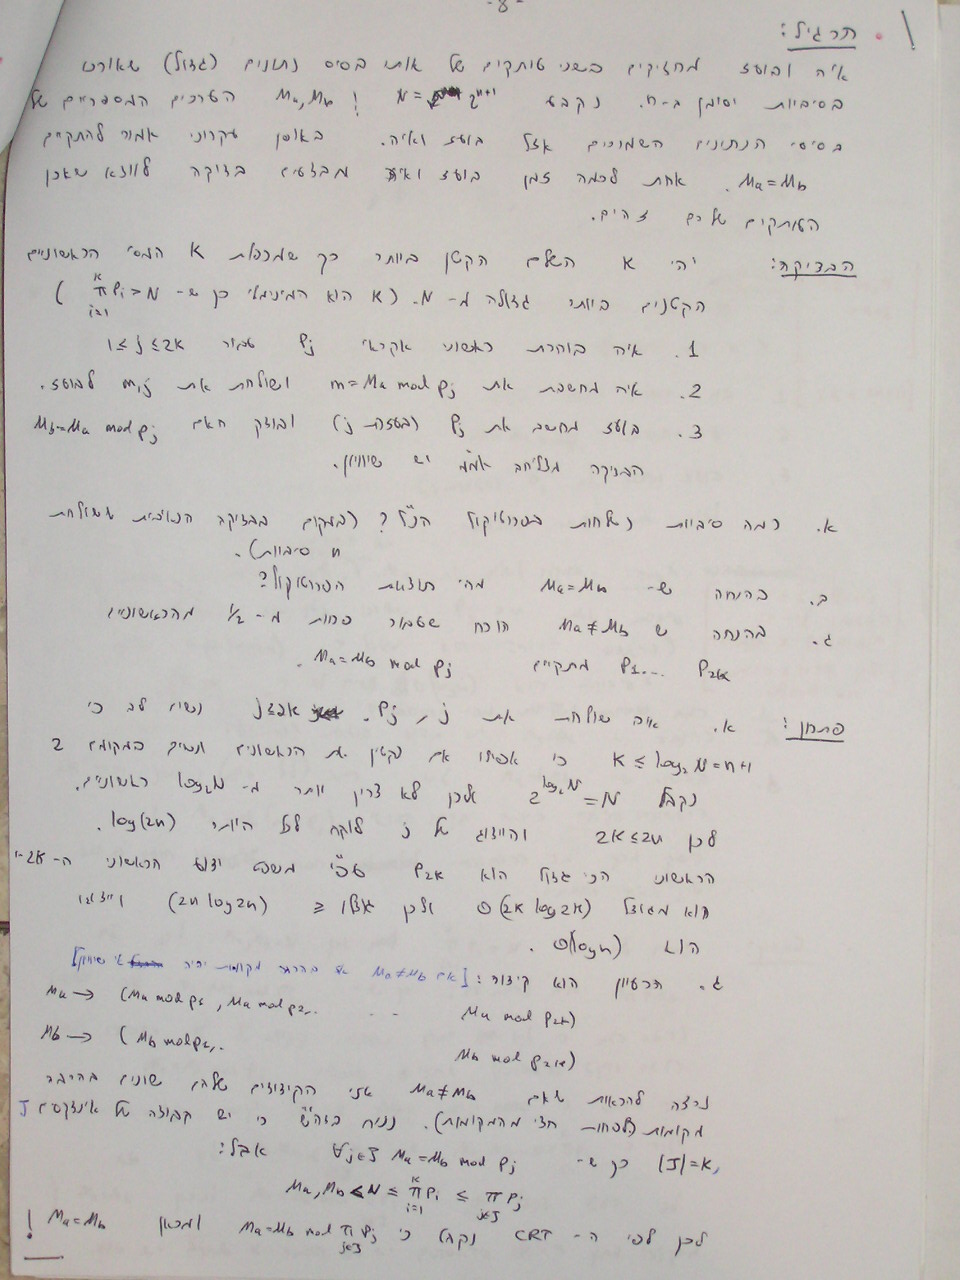 -8-
תרגיל:
איה ובועז מחזיקים בשני עותקים של אותו בסיס נתונים (גדול) שאורכו
בסיביות יסומן ב-n. נקבע N = 2^{n+1} ו Ma, Mb הערכים המספריים של
בסיסי הנתונים השמורים אצל בועז ואיה. באופן עקרוני אמור להתקיים
Ma = Mb. אחת לכמה זמן בועז ואיה מבצעים בדיקה לוודא שאכן
העותקים שלהם זהים.
הבדיקה: יהי K השלם הקטן ביותר כך שמכפלת K המס' הראשוניים
הקטנים ביותר גדולה מ-N. (K הוא המינימלי כך ש- \prod_{i=1}^{K} P_i > N)
1. איה בוחרת ראשוני אקראי Pj עבור 1 ≤ j ≤ 2K
2. איה מחשבת את m = Ma mod Pj ושולחת את m, j לבועז.
3. בועז מחשב את Pj (בעזרת j) ובודק האם Mb = Ma mod Pj
הבדיקה תצליח אמ"מ יש שיוויון.
א. כמה סיביות נשלחות בפרוטוקול הנ"ל? (במקום בבדיקה הנאיבית ששולחת
n סיביות).
ב. בהנחה ש- Ma = Mb מהי תוצאת הפרוטוקול?
ג. בהנחה ש Ma ≠ Mb הוכח שעבור פחות מ-1/2 מהראשוניים
P1 ... P2K מתקיים Ma = Mb mod Pj.
פתרון: א. איה שולחת את j, Pj. נשים לב כי
K ≤ log₂N = n+1 כי אפילו אם נקטין את הראשוניים ונשים במקומם 2
נקבל 2^{log₂N} = N ולכן לא צריך יותר מ-log₂N ראשוניים.
לכן 2K ≤ 2n והייצוג של j לוקח לכל היותר log(2n).
הראשוני הכי גדול הוא P2K עפ"י משפט ידוע הראשוני ה-2K
הוא מגודל Θ(2K log 2K) ולכן גודלו ≤ (2n log 2n) וייצוגו
הוא Θ(log n).
ג. הרעיון הוא קידוד: [אם Ma ≠ Mb אז בהרבה מקומות יהיה אי שיוויון]
Ma → (Ma mod P1, Ma mod P2, ... Ma mod P2K)
Mb → (Mb mod P1, ... Mb mod P2K)
נרצה להראות שאם Ma ≠ Mb אזי הקידודים שלהם שונים בהרבה
מקומות (לפחות חצי מהמקומות). נניח בזה"ש כי יש קבוצה של אינדקסים J
|J| = K, כך ש- ∀j∈J Ma = Mb mod Pj אבל:
Ma, Mb < N ≤ \prod_{i=1}^{K} P_i ≤ \prod_{j∈J} P_j
לכן לפי ה-CRT נקבל כי Ma = Mb mod \prod_{j∈J} P_j ומכאן Ma = Mb !